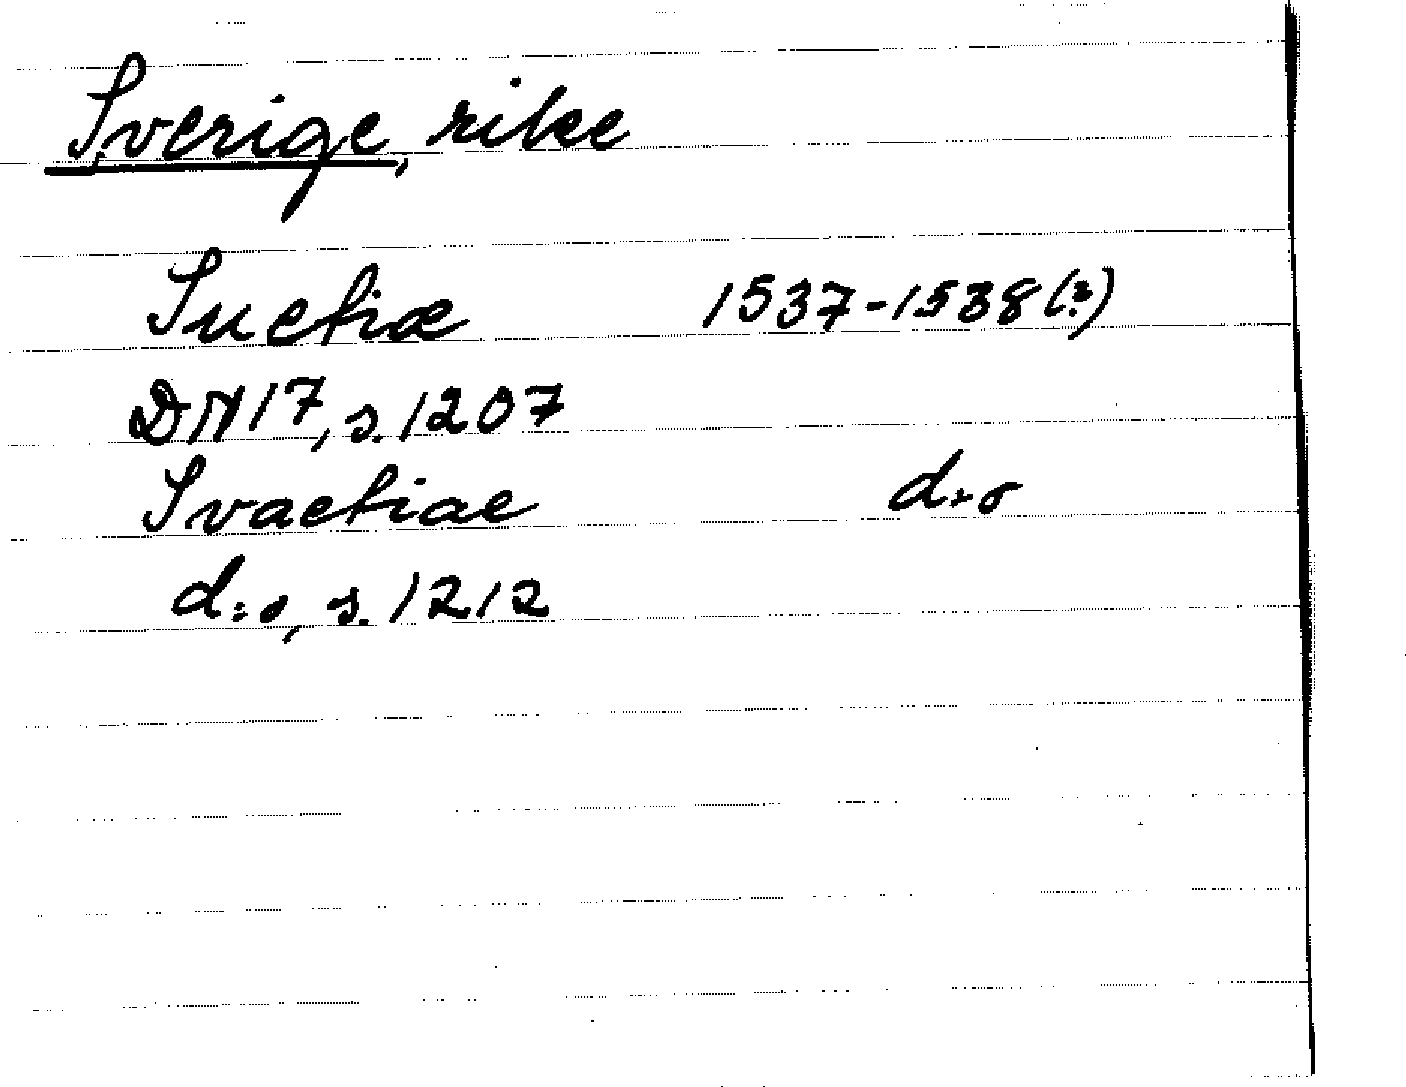 Sverige, rike
Suetiæ 1537-1538(?)
DN 17, s. 1207
Svaetiae d:o
d:o, s. 1212